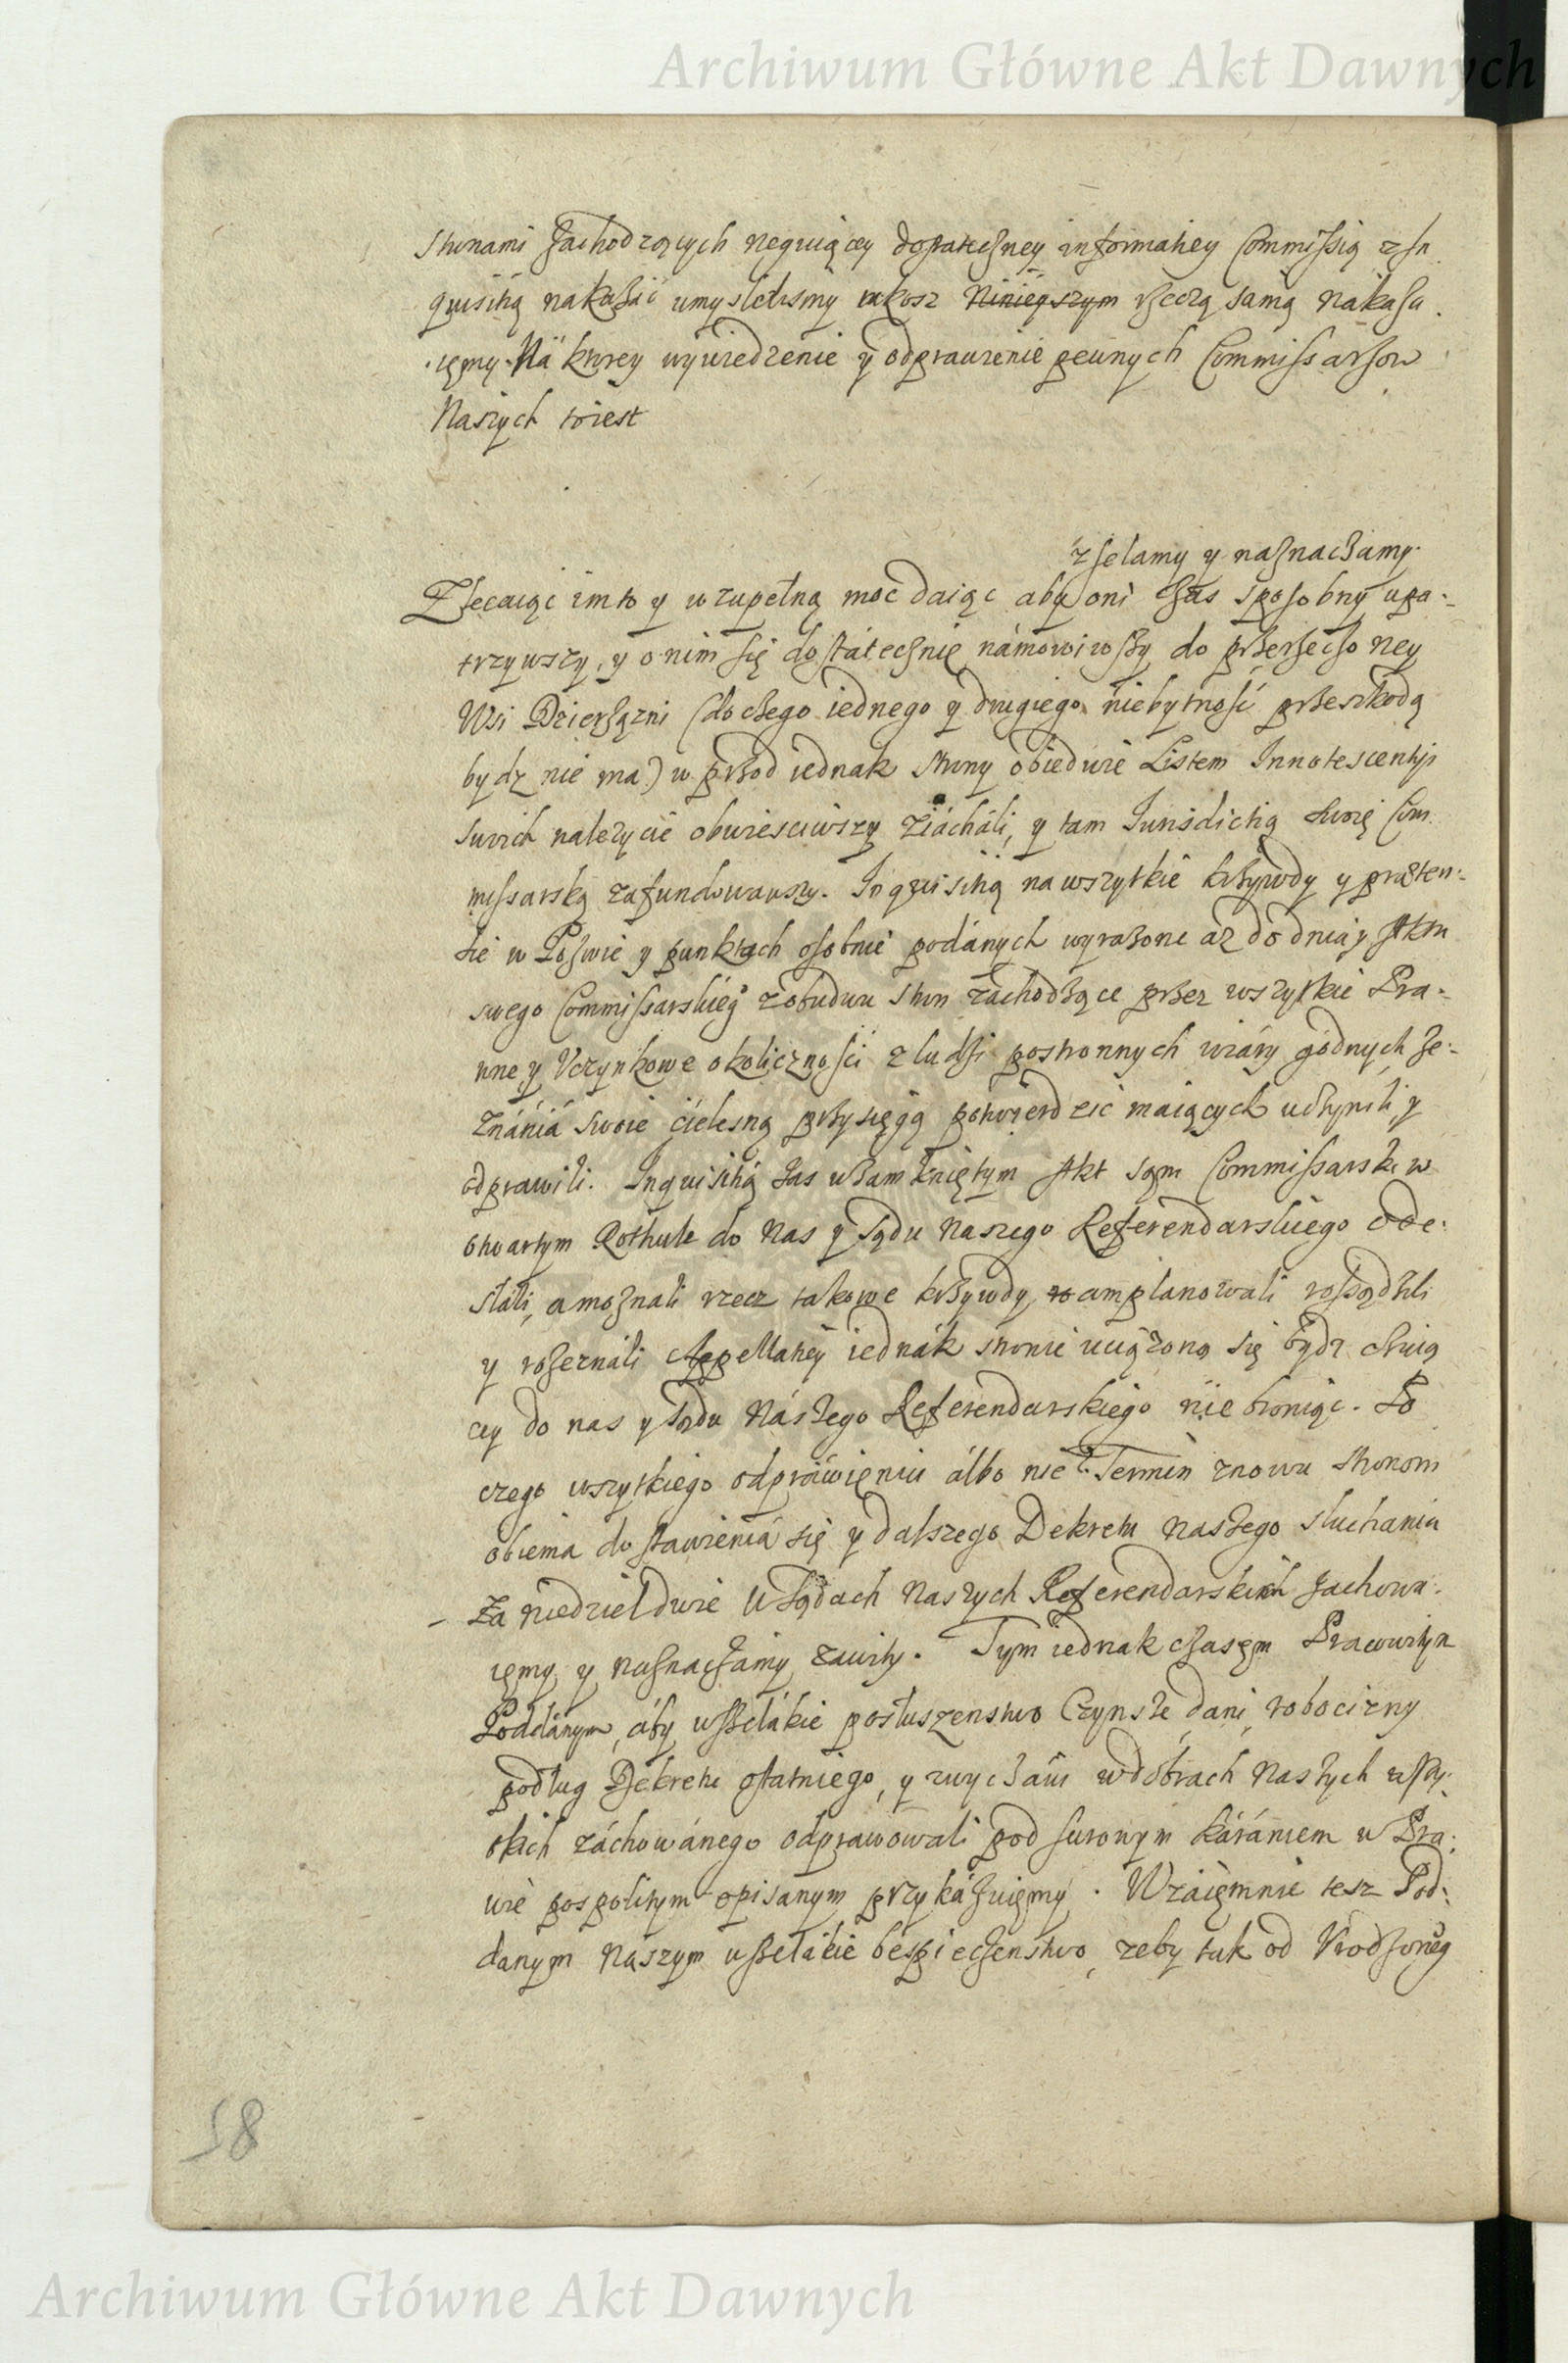 Archiwum Główne Akt Dawnych
stronami zachodzących dostateczney informatiey Commissią z In
quisitią nakazać umyslelismy iakosz Ninieyszym rzeczą samą nakazu
iemy. Na ktorey wywiedzenie y odprawienie pewnych Commissarzow
Naszych to iest
zselamy y naznaczamy.
Zlecaiąc im to y w zupełną moc daiąc aby oni czas sposobny upa-
trzywszy, y o nim się dostatecznie námowiwszy do przerzeczoney
Wsi Dzierzązni (do czego iednego y drugiego niebytność przeszkodą
bydz nie ma) w przod iednak strony obiedwie Listem Innotescentyi
swich nalezycie obwiesciwszy ziácháli, y tam Iurisdictią swoię Com
missarską zafundowawszy. Inquisitią na wszytkie krzywdy y præten-
sie w Pozwie y punktach osobnie podánych wyrazone az do dnia y Aktu
swego Commissarskieg z obudwu stron zachodzące przez wszytkie Pra-
wne y Uczynkowe okoliczności z ludzi postronnych wiáry godnych ze-
znánia swoie cielesną przysięgą potwierdzić maiących uczynili y
odprawili. Inquisitią zas w zamkniętym Akt sąm Commissarski w
otwartym Rothule do Nas y Sądu Naszego Referendarskiego ode-
słali, a moznali rzecz takowe krzywdy complanowali rozsądzili
y rozeználi Appellatiey iednák stronie uciązoną się bydz czuią
cey do nas y Sądu Nászego Referendarskiego nie broniąc. Po
czego wszytkiego odpráwieniu álbo nie Termin znowu stronom
obiema do stawieniá się y dalszego Dekretu naszego słuchania
Za niedziel dwie w Sądach Naszych Referendarskich zachowu-
iemy y naznaczamy zawity. Tym iednak czasem Pracowitym
Poddánym, áby wszelákie posłuszenstwo Czynsze dani, robocizny
podług Dekretu ostatniego, y zwyczaiu w dobrach Naszych wszy-
tkich záchowánego odprawowali pod surowym karániem w Pra-
wie pospolitym opisanym przykázuiemy. Wzaiemnie tesz Pod-
danym Naszym wszelákie bespieczenstwo, zeby tak od Urodzoneg
58
Archiwum Główne Akt Dawnych